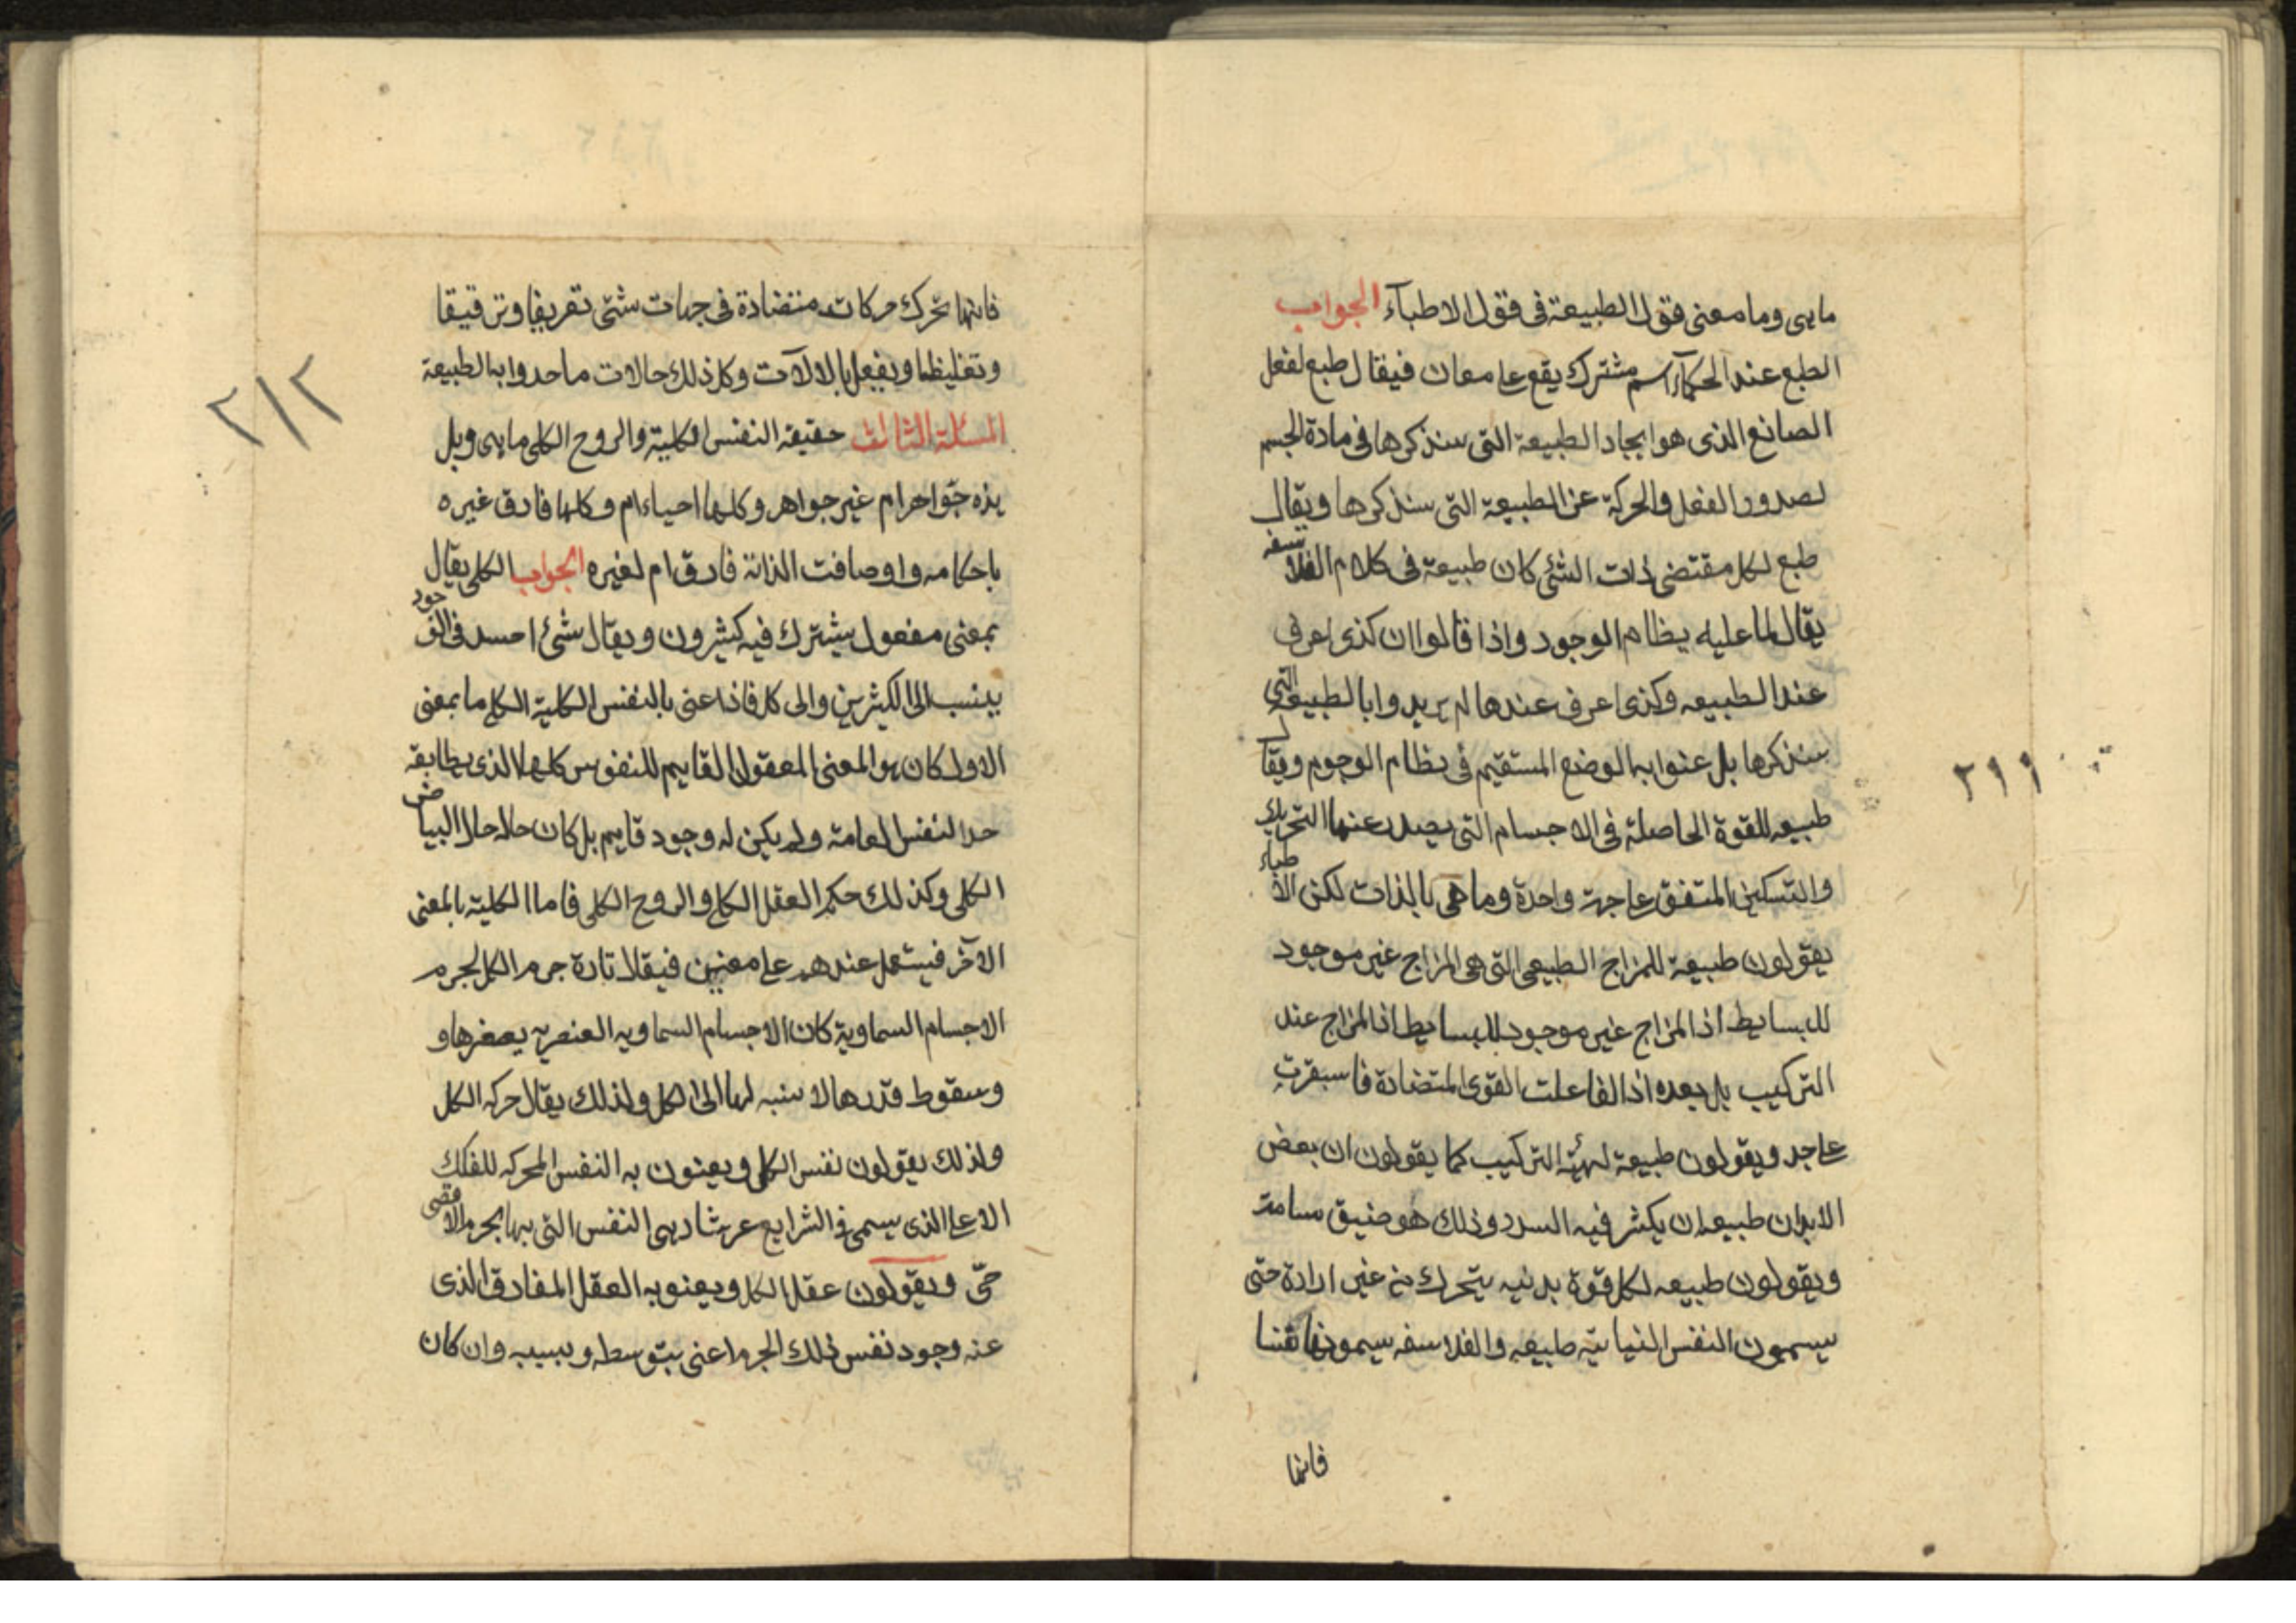 ماهى وما معنى قول الطبيعة فى قول الاطبآء الجواب
الطبع عند الحكمآء اسم مشترك يقع على معان فيقال طبع لفعل
الصانع الذى هو ايجاد الطبيعة التى سنذكرها فى مادة الجسم
لصدور الفعل والحركة عن الطبيعة التى سنذكرها ويقال
طبع لكل مقتضى ذات الشئ كان طبيعة فى كلام الفلاسفه
يقال لما عليه نظام الوجود واذا قالوا ان كذى اعرف
عند الطبيعه وكذى اعرف عندها لم يريدوا بالطبيعة التى
سنذكرها بل عنوا به الوضع المستقيم فى نظام الوجوم ويقال
طبيعه للقوة الحاصلة فى الاجسام التى يصدر عنها التحريك
والتسكين المتفق على جهة واحدة وما هى بالذات لكن الاطباء
يقولون طبيعة للمزاج الطبيعى التى هى المزاج غير موجود
للبسايط اذ المزاج غير موجود للبسايط اذ المزاج عند
التركيب بل بعده اذا لفاعلت القوى المتضادة فاسبقرت
على حد ويقولون طبيعة لهيئة التركيب كما يقولون ان بعض
الابدان طبيعه ان يكثر فيه السدد وذلك هو ضيق مسامه
ويقولون طبيعه لكل قوة بدنيه يتحرك من غير ارادة حتى
يسمون النفس النباتيّه طبيعه والفلاسفه يسمونها نفسا
فانها
٢١١
فانها تحرك حركات متضادة فى جهات شتى تفريقا وترقيقا
وتغليظا ويفعل بالالآت وكل ذلك حالات ما حدوا به الطبيعة
المسئلة الثالث حقيقة النفس الكلية والروح الكلى ماهى وهل
هذه جوّ اجرام غير جواهر وكلها احياء ام وكلها فارق غيره
باحكامه واوصافت الذاتة فارق ام لغيره الجواب الكلى يقال
بمعنى مفعول يشترك فيه كثيرون ويقال شئ احسد فى الوجود
ينسب الى الكثيرين والى كل فاذا عنى بالنفس الكلية الكل ما بمعنى
الاول كان هو المعنى المعقول القايم للنفوس كلها الذى يطابقه
حد النفس العامة ولم يكن له وجود قايم بل كان حاله حال البياض
الكلى وكذلك حكم العقل الكلى والروح الكلى فاما الكلية بالمعنى
الآخر فيستعمل عندهم على معنيين فيقلا تارة جرم الكل لجرم
الاجسام السماوية كان الاجسام السماويه العنصريه يصغرها و
وسقوط قدرها لا سنبه لها الى الكل ولذلك يقال حركه الكل
ولذلك يقولون نفس الكلى ويعنون به النفس المحركه للفلك
الاعلى الذى يسمى فى الشرايع عرشا وهى النفس التى بها الجرم الاقصى
حىّ ويقولون عقل الكل ويعنو به العقل المفارق الذى
عنه وجود نفس ذلك الجرم اعنى بتوسطه وبسببه وان كان
٢١٢